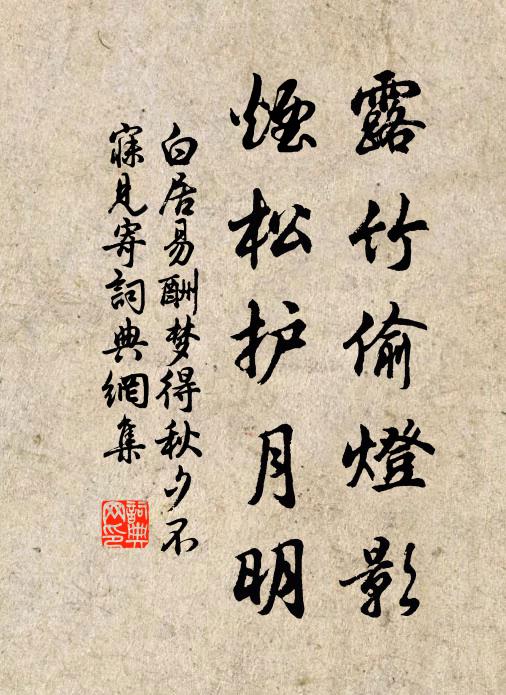 露竹偷燈影
煙松护月明
白居易酬梦得秋夕不
寐見寄詞典網集
詞典
网印